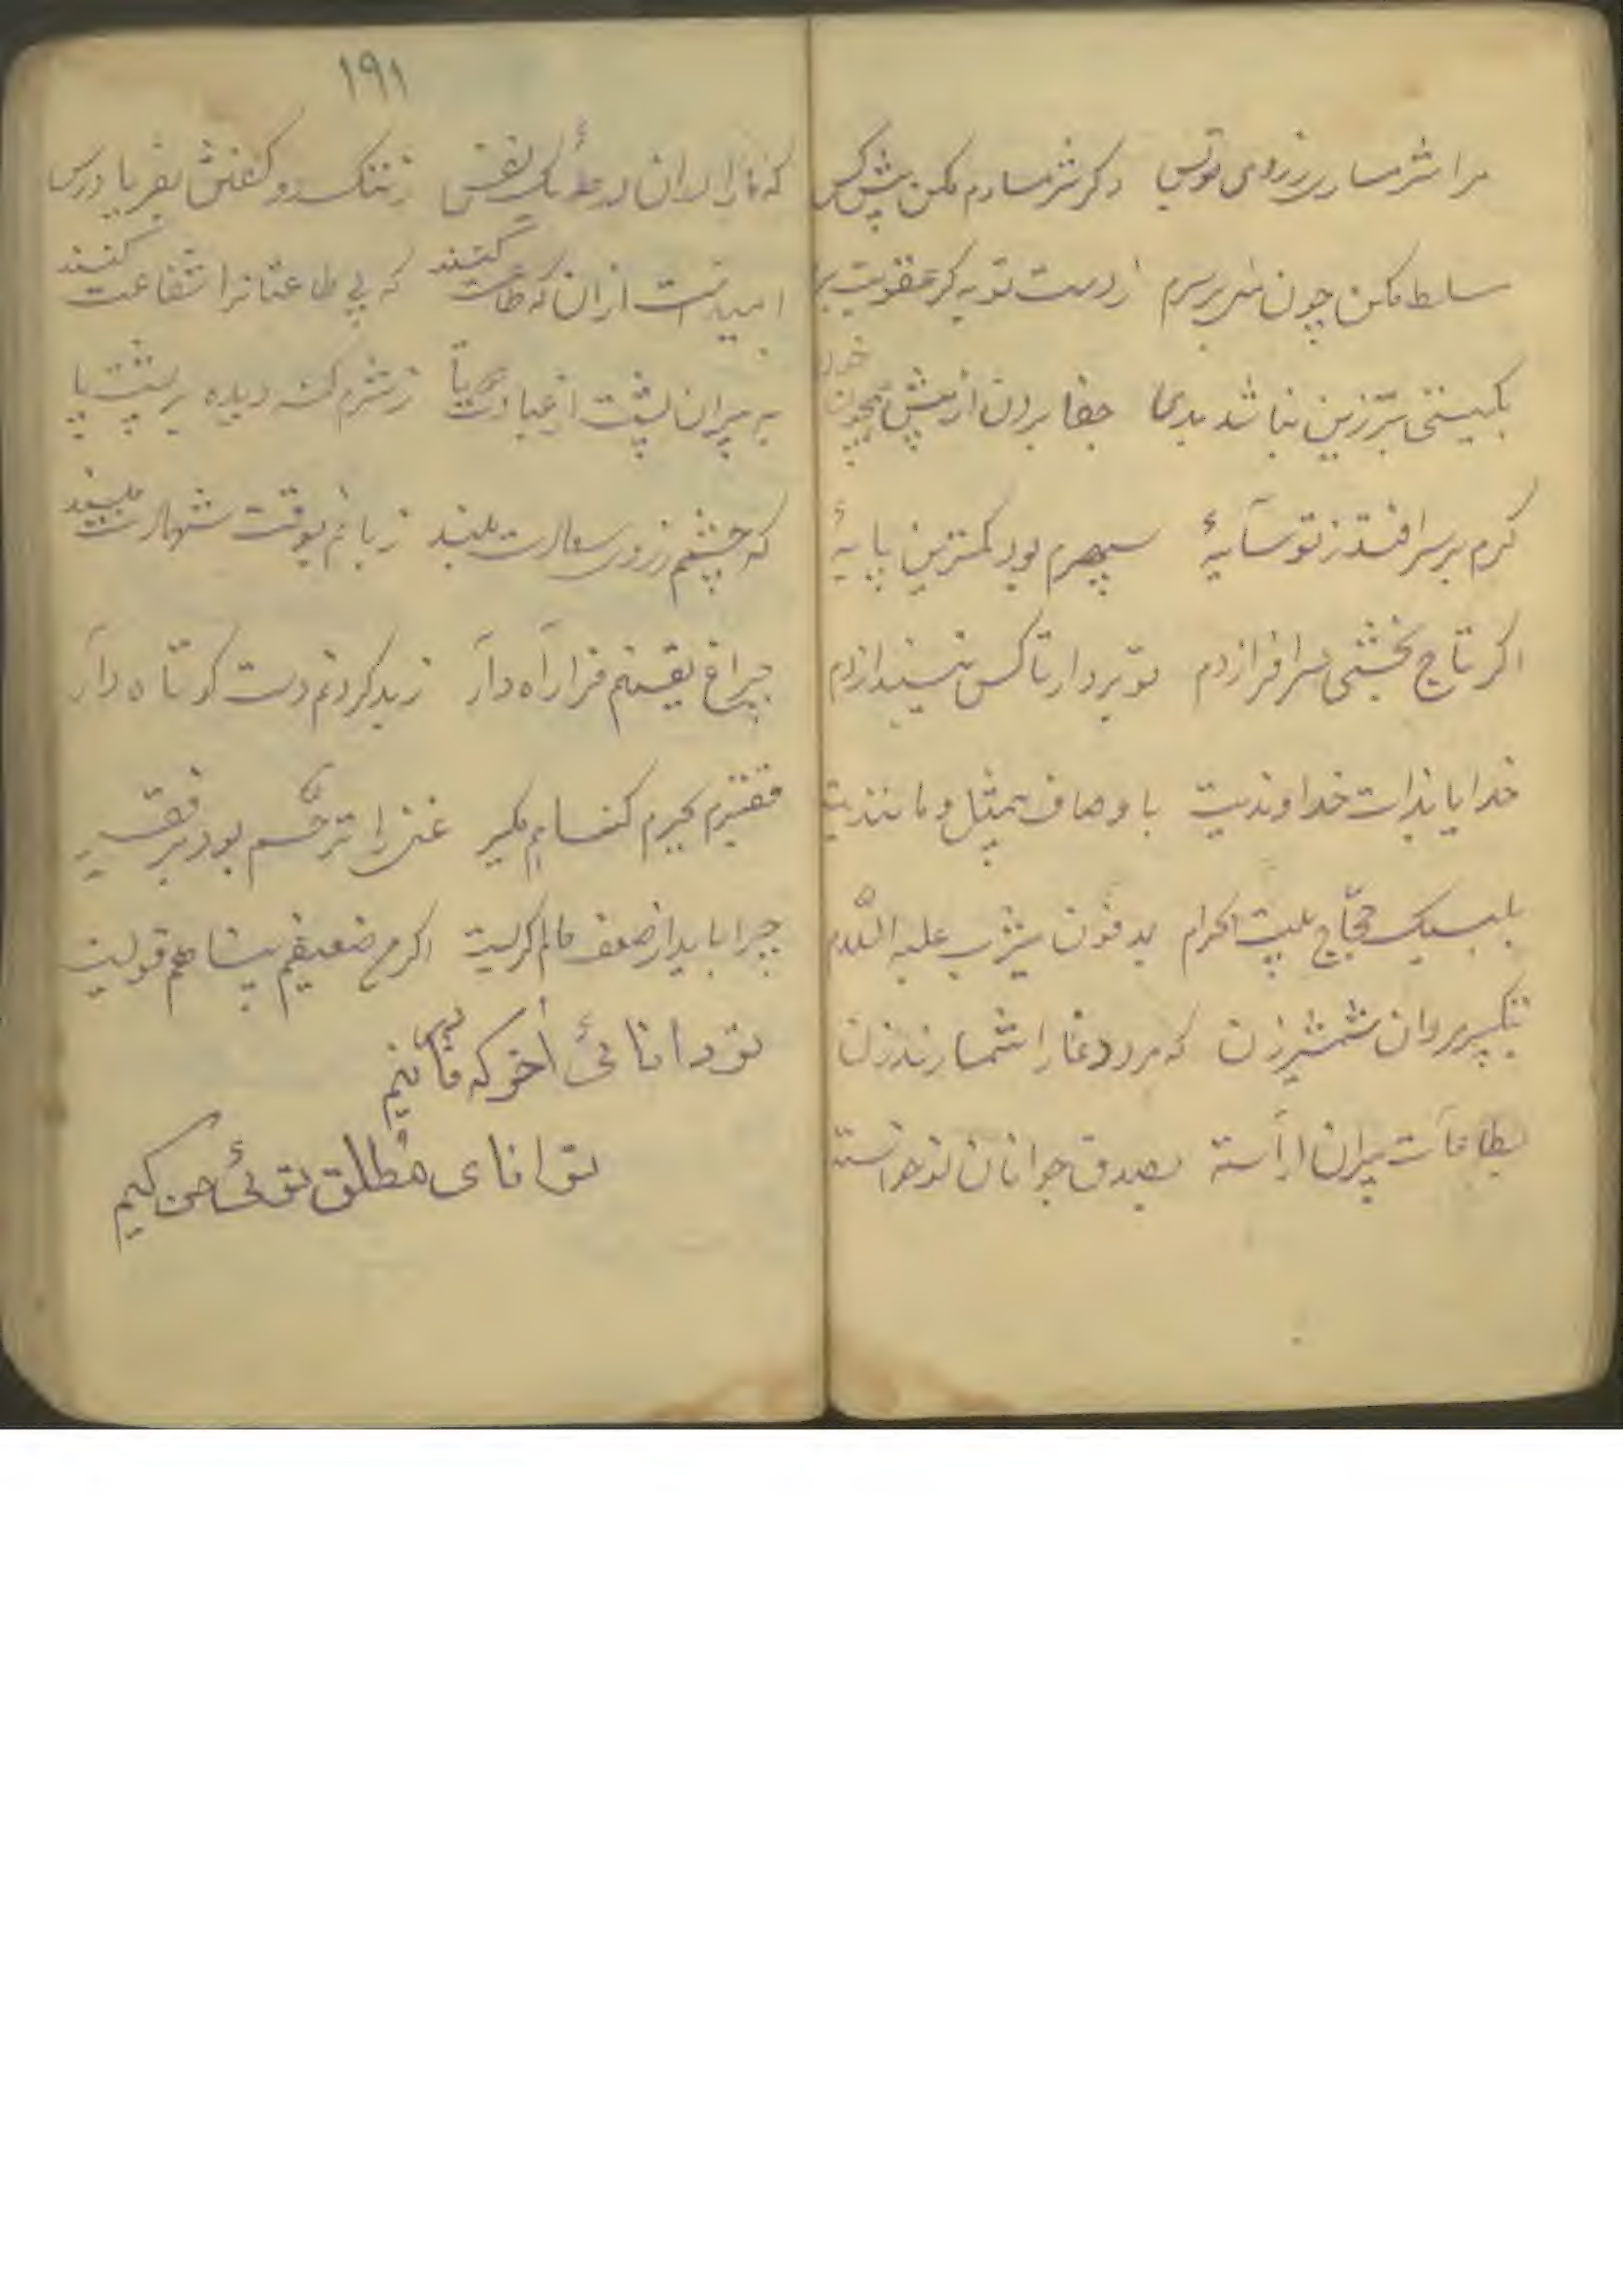 مرا شرمساری ز روی تو بس دکر شرمسارم مکن پیش کس
مسلط مکن چون منی بر سرم ز دست تو به کر عقوبت برم
بکیتی بتر زین نباشد بدی جفا بردن از پیش همچون خودی
کرم بر سر افتد ز تو سایهٔ سپهرم بود کمترین پایهٔ
اکر تاج بخشی سر افرازدم تو بردار تا کس نیندازدم
خدایا بذات خداوندیت باوصاف بیمثل و مانندیت
بلبیک حجّاج بیت الحرام بمدفون یثرب علیه السّلام
بتکبیر مردان شمشیر زن که مرد وغا را شمارند زن
بطاعات پیران آراسته بصدق جوانان نوخواسته
۱۹۱
که ما را در آن ورطهٔ یک نفس ز ننک دو کفتن بفریاد رس
امیدست از آنان که طاعت کنند که بی طاعتانرا شفاعت کنند
به پیران پشت از عبادت دو تا ز شرم کنه دیده بر پشت پا
که چشمم ز روی سعادت مبند زبانم بوقت شهادت مبند
چراغ یقینم فرا راه دار ز بد کردنم دست کوتاه دار
فقیرم بجرم کناهم مکیر غنی را ترحّم بود بر فقیر
چرا باید از ضعف حالم کریست اکر من ضعیفم پناهم قویست
تو دانائی آخر که قادر نیم
توانای مطلق توئی من کیم